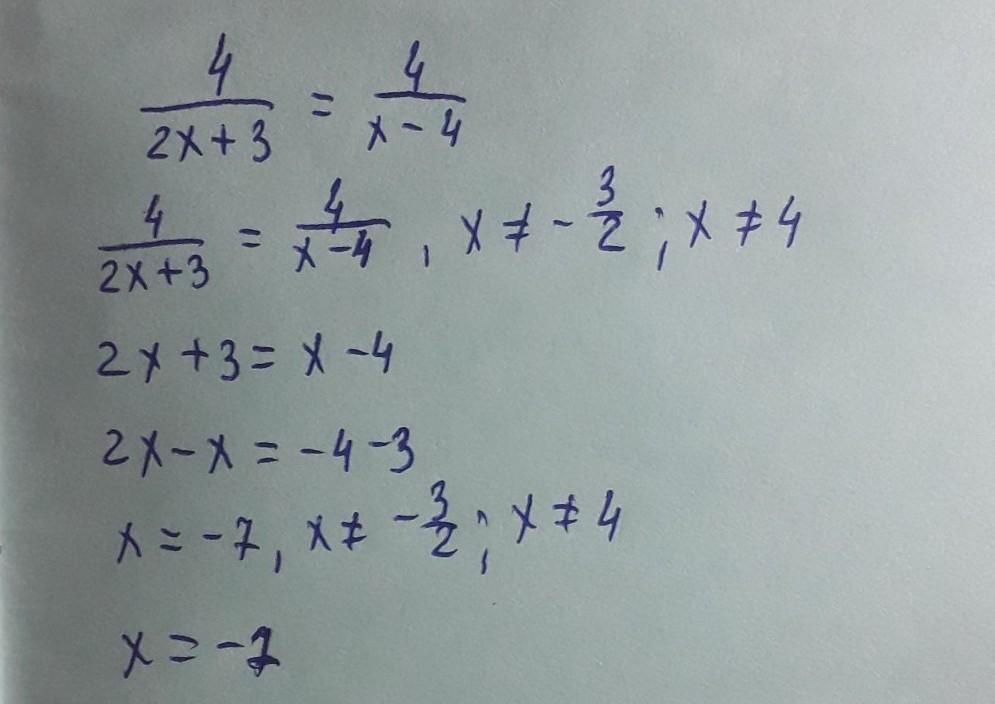 4/(2x+3) = 4/(x-4)
4/(2x+3) = 4/(x-4), x ≠ -3/2; x ≠ 4
2x+3 = x-4
2x-x = -4-3
x = -7, x ≠ -3/2; x ≠ 4
x = -7